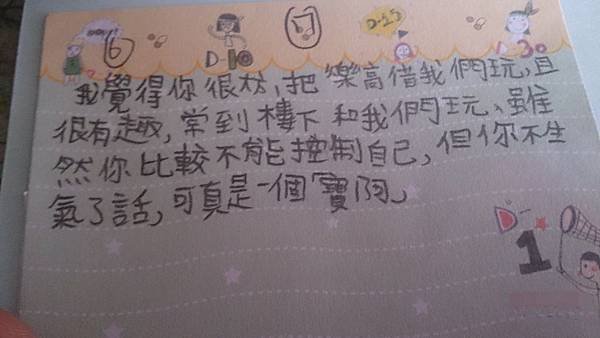 6
D-10
D-25
30
我覺得你很大方,把樂高借我們玩,且
很有趣,常到樓下和我們玩、雖
然你比較不能控制自己,但你不生
氣了話,可真是一個「寶阿」
D-1